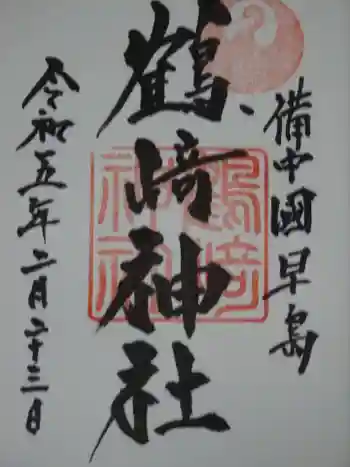 備中國早島
鶴﨑神社
令和五年二月二十三日
鶴﨑神社